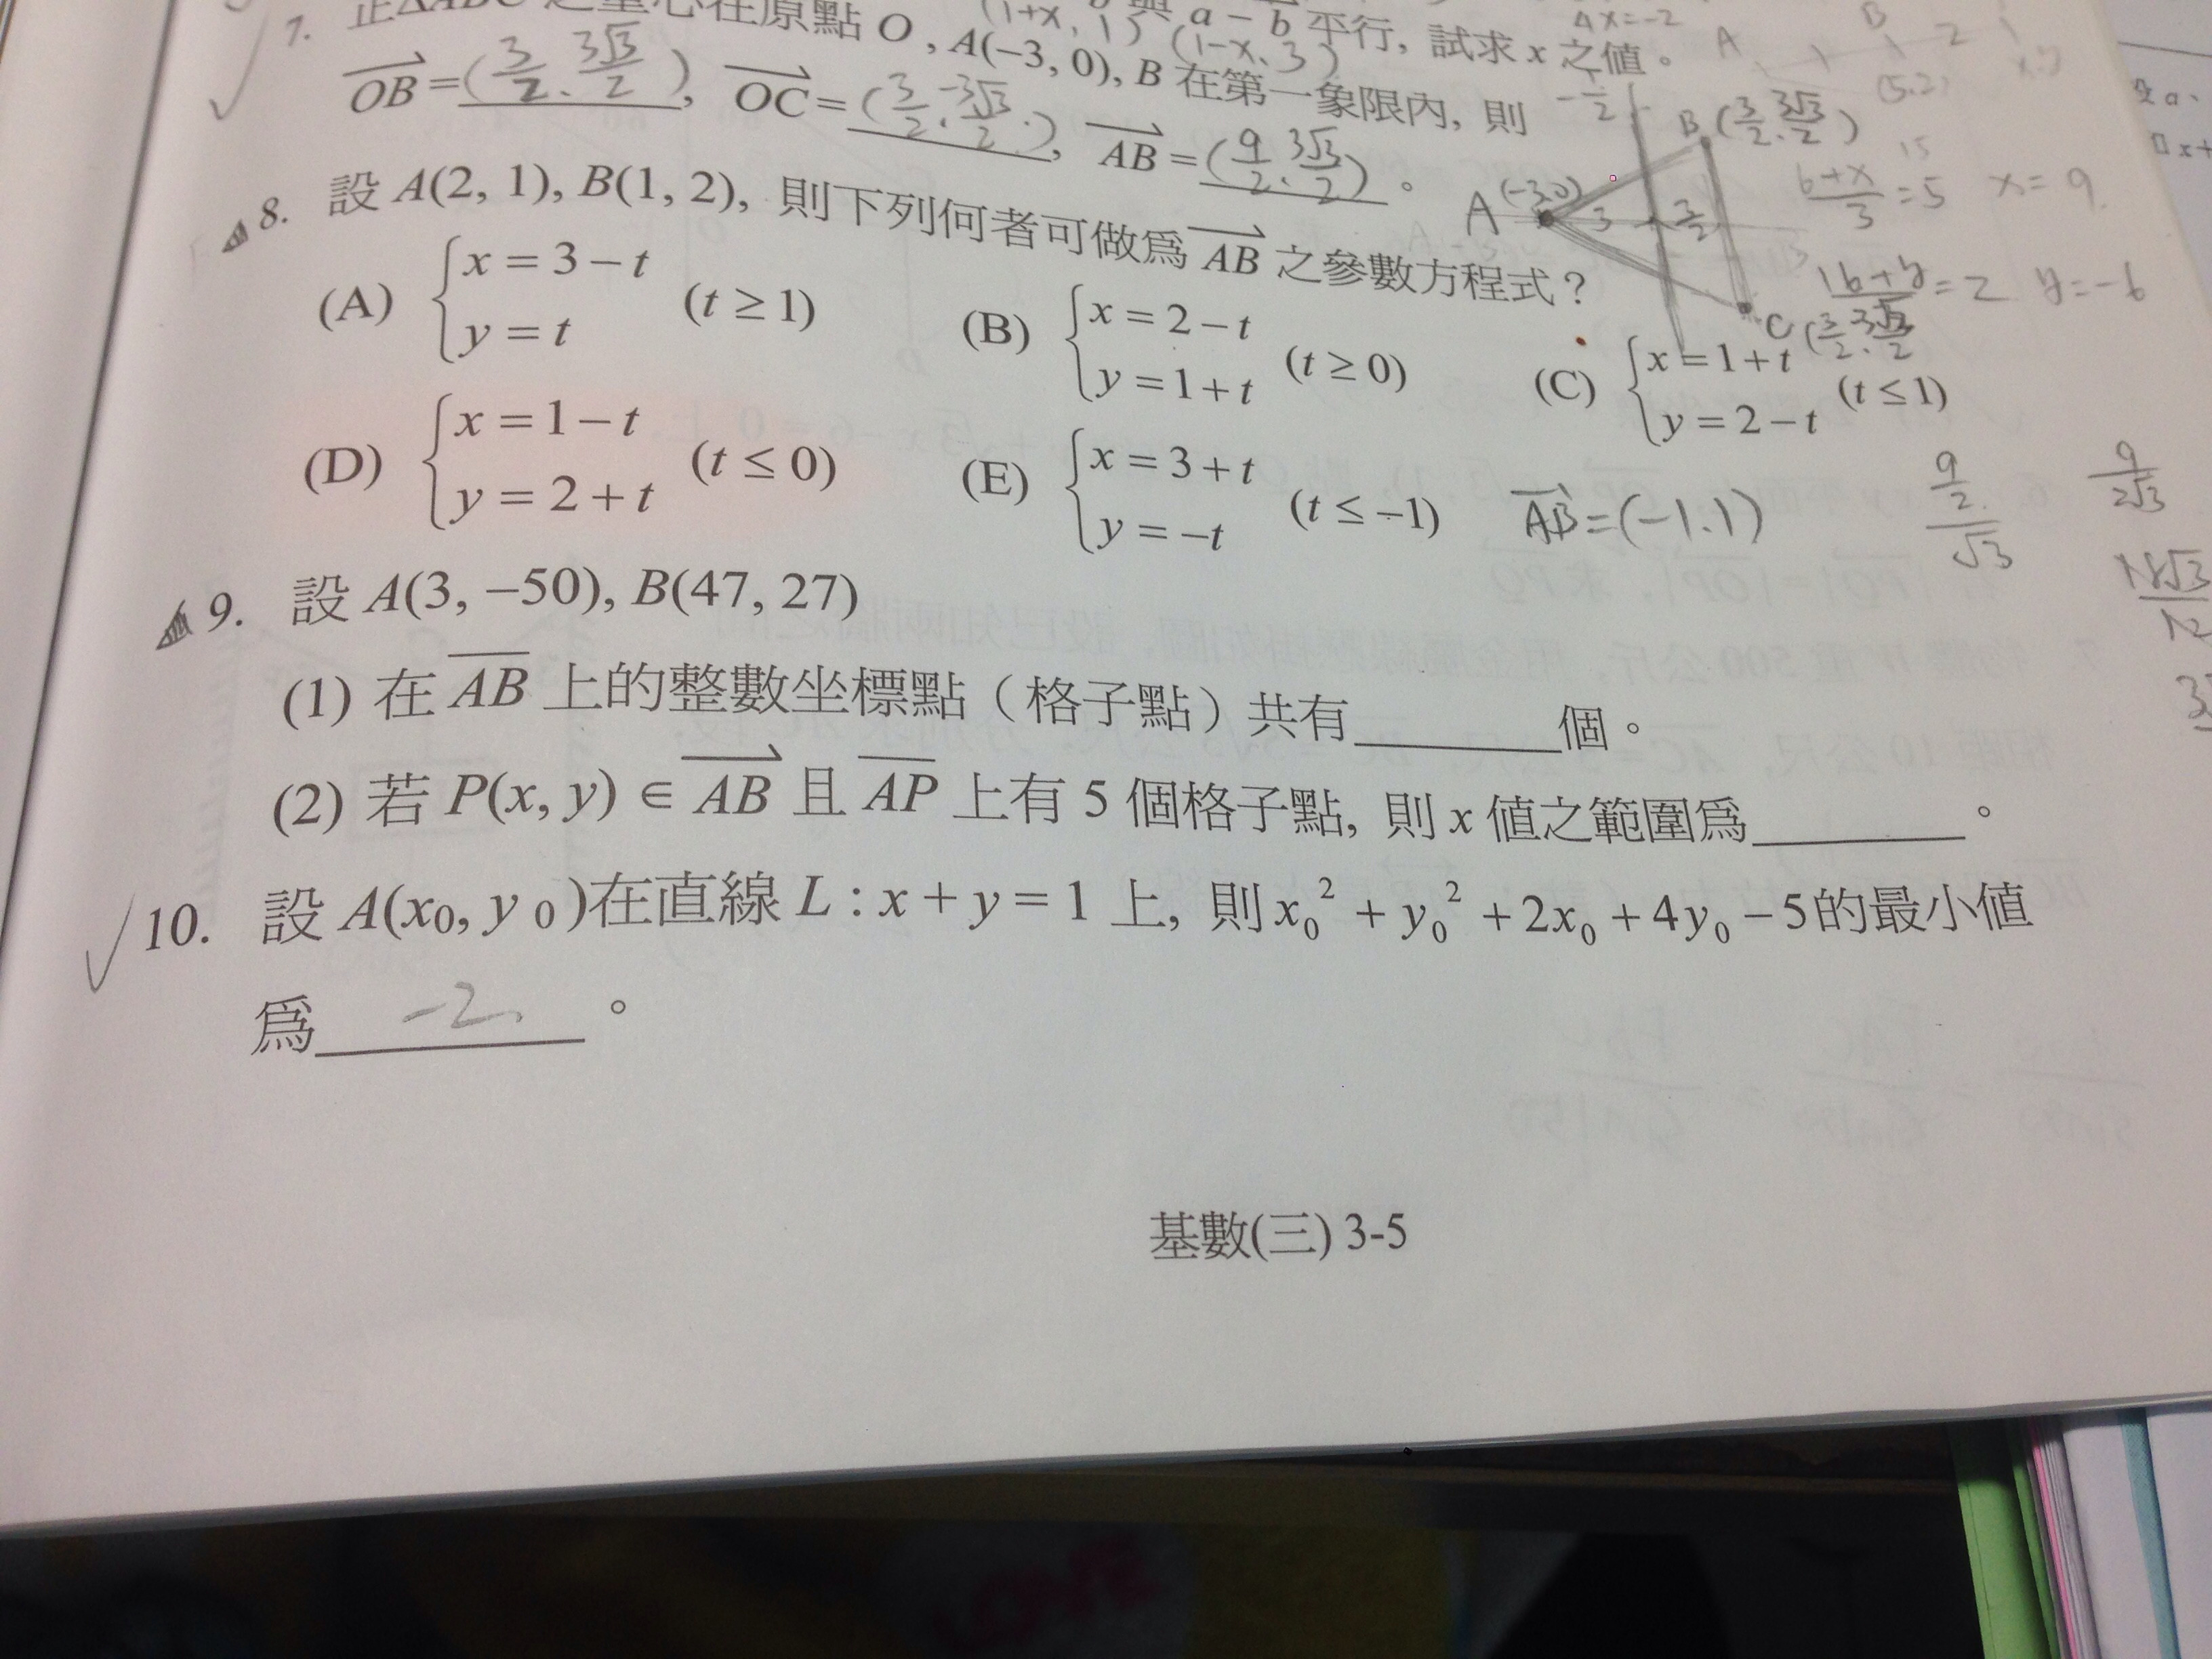 7. 正△ABC 之重心在原點 O , A(−3, 0), B 在第一象限內, 則
a − b 平行, 試求 x 之值。
(1+x, 1) (1−x, 3)
4x=−2
OB = (3/2, 3√3/2), OC = (3/2, −3√3/2), AB = (9/2, 3√3/2)。
A (−3,0) 3 3/2
B (3/2, 3√3/2)
C (3/2, 3√3/2)
(5,2)
(6+x)/3 = 5 x = 9
(16+y)/ = 2 y = −6
8. 設 A(2, 1), B(1, 2), 則下列何者可做爲 AB 之參數方程式?
(A) { x = 3 − t y = t (t ≥ 1)
(B) { x = 2 − t y = 1 + t (t ≥ 0)
(C) { x = 1 + t y = 2 − t (t ≤ 1)
(D) { x = 1 − t y = 2 + t (t ≤ 0)
(E) { x = 3 + t y = −t (t ≤ −1)
AB = (−1.1)
9/2 / √3
9/2√3
9. 設 A(3, −50), B(47, 27)
(1) 在 AB 上的整數坐標點（格子點）共有______個。
(2) 若 P(x, y) ∈ AB 且 AP 上有 5 個格子點, 則 x 值之範圍爲______。
10. 設 A(x₀, y ₀)在直線 L : x + y = 1 上, 則 x₀² + y₀² + 2x₀ + 4y₀ − 5 的最小值
爲 −2 。
基數(三) 3-5